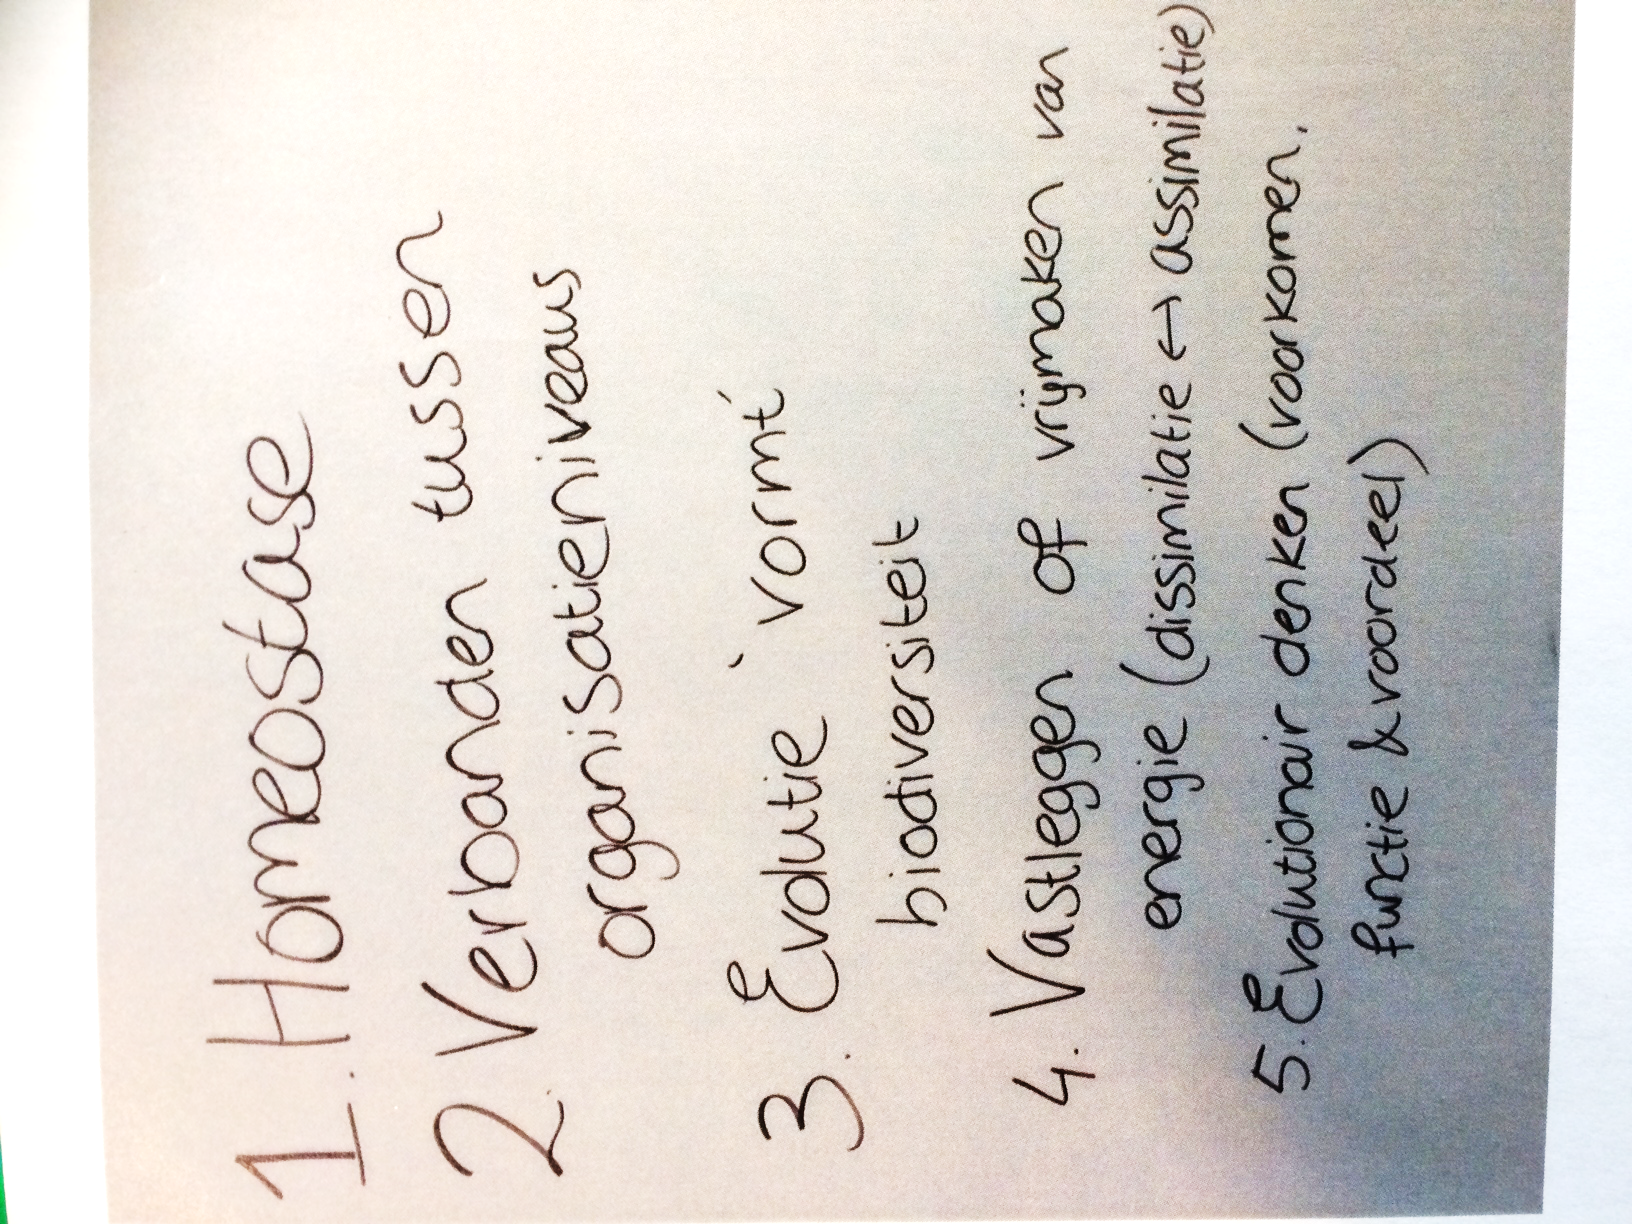 1. Homeostase
2. Verbanden tussen
organisatieniveaus
3. Evolutie `vormt´
biodiversiteit
4. Vastleggen of vrijmaken van
energie (dissimilatie ↔ assimilatie)
5. Evolutionair denken (voorkomen.
functie & voordeel)